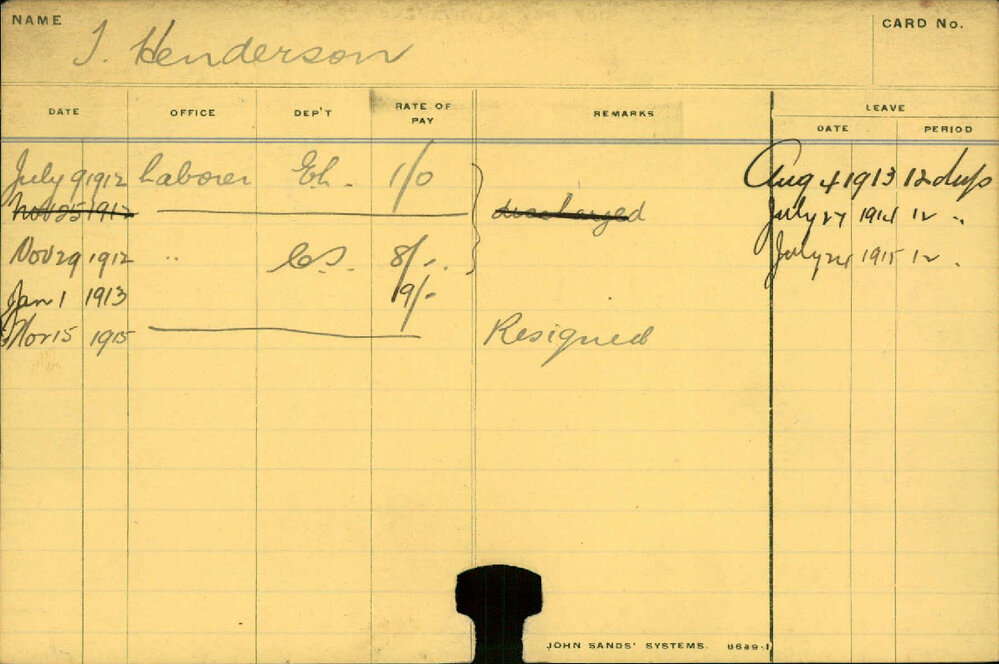 NAME
CARD No.
J. Henderson
DATE OFFICE DEP'T RATE OF PAY REMARKS LEAVE
DATE PERIOD
July 9 1912 Laborer Eh. 1/0 Aug 4 1913 12 days
Nov 25 1912 discharged July 27 1914 12 "
Nov 29 1912 " C.S. 8/- July 24 1915 12 "
Jan 1 1913 9/-
Nov 15 1915 Resigned
JOHN SANDS' SYSTEMS. 8689-1